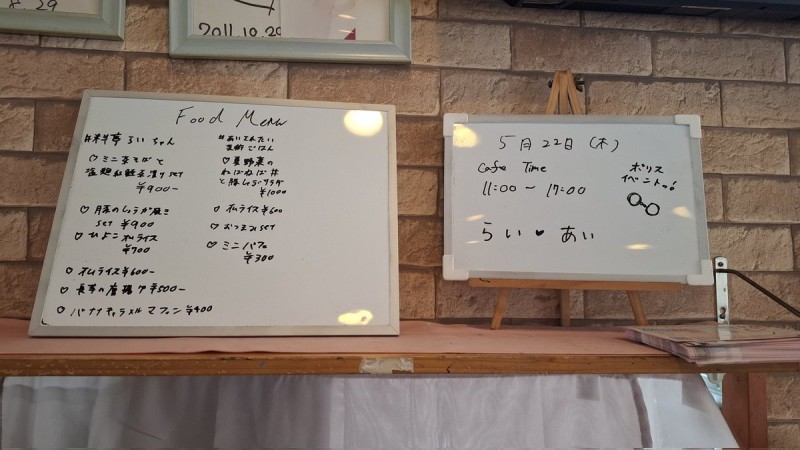 29
2011.10.29
Food Menu
#料亭るいちゃん
♡ミニ
塩麹
set
¥900-
♡豚のしょうが焼き
set ¥900
♡ひよこオムライス
¥700
♡オムライス¥600-
♡長芋の唐揚げ¥500-
♡バナナキャラメルマフィン¥400
#あいてれたい
ごはん
♡夏野菜の
ねばねば丼
と豚しゃぶサラダ
¥1000
♡オムライス¥600
♡おつまみset
♡ミニパフェ
¥300
5月22日(木)
Cafe Time
11:00～17:00
らい♥あい
ポリス
イベントっ!